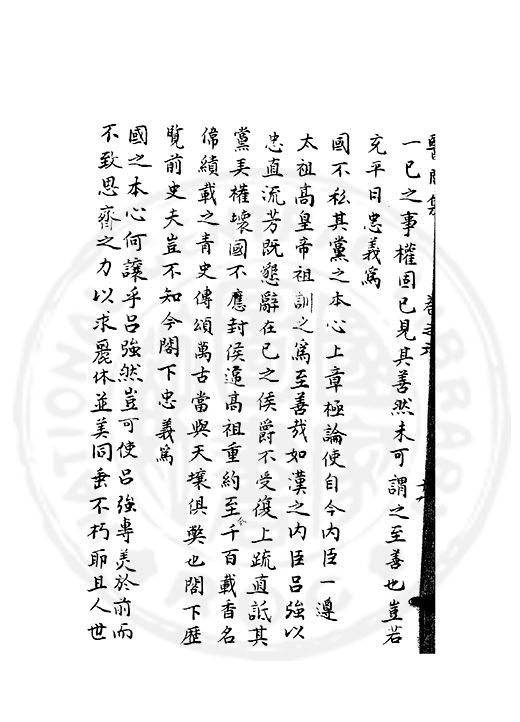 醫閭集 卷之六
一已之事權固已見其善然未可謂之至善也豈若
充平日忠義爲
國不私其黨之本心上章極論使自今内臣一遵
太祖高皇帝祖訓之爲至善哉如漢之内臣吕強以
忠直流芳既懇辭在已之侯爵不受復上疏直詆其
黨美權壞國不應封侯違高祖重約至今千百載香名
偉績載之青史傳頌萬古當與天壤俱弊也閤下歷
覽前史夫豈不知今閤下忠義爲
國之本心何讓乎吕強然豈可使吕強專美於前而
不致思齊之力以求麗休並美同垂不朽耶且人世